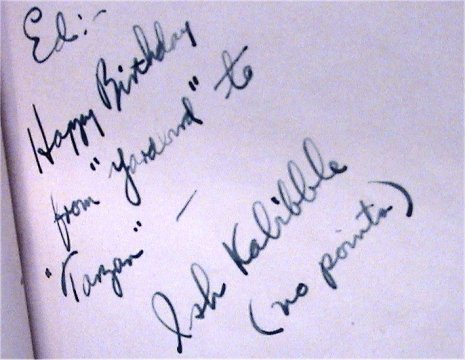 Ed:-
Happy Birthday
from "Yardbird" to
"Tarzan" —
Ish Kabibble
(no points)